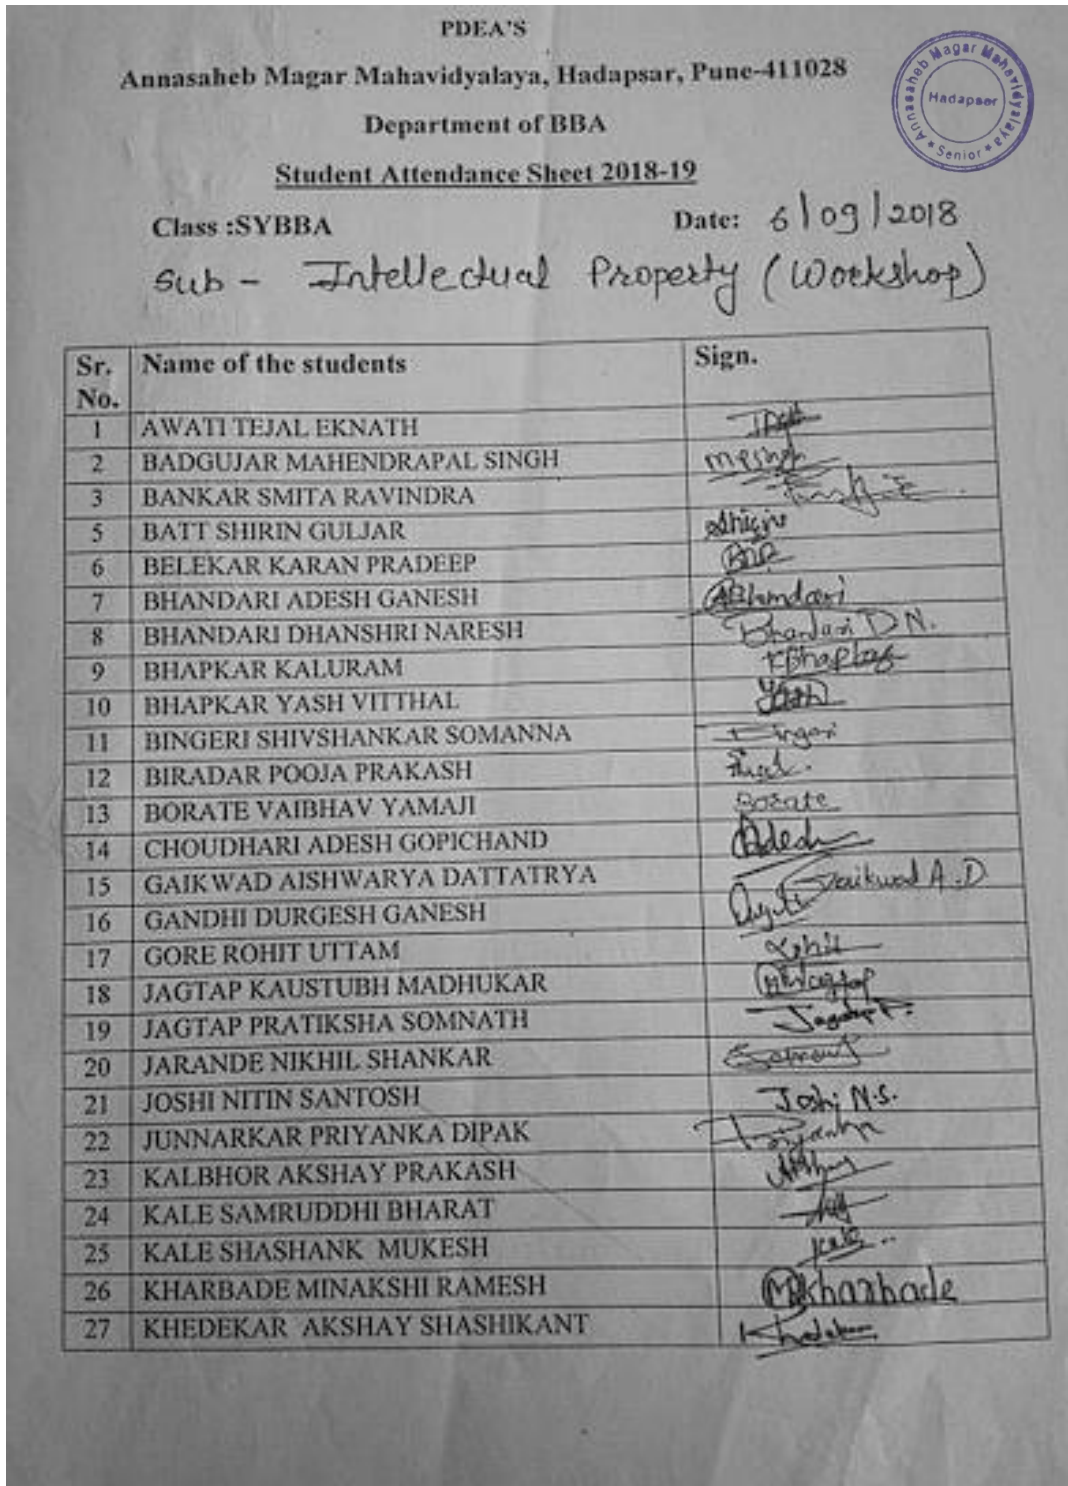 PDEA'S
Annasaheb Magar Mahavidyalaya, Hadapsar, Pune-411028
Annasaheb Magar Mahavidyalaya
Hadapser
★ Senior ★
Department of BBA
Student Attendance Sheet 2018-19
Class :SYBBA Date: 6/09/2018
Sub - Intellectual Property (Workshop)
Sr. No. Name of the students Sign.
1 AWATI TEJAL EKNATH
2 BADGUJAR MAHENDRAPAL SINGH
3 BANKAR SMITA RAVINDRA
5 BATT SHIRIN GULJAR
6 BELEKAR KARAN PRADEEP
7 BHANDARI ADESH GANESH ABhandari
8 BHANDARI DHANSHRI NARESH Bhandari D N.
9 BHAPKAR KALURAM
10 BHAPKAR YASH VITTHAL
11 BINGERI SHIVSHANKAR SOMANNA
12 BIRADAR POOJA PRAKASH
13 BORATE VAIBHAV YAMAJI Borate
14 CHOUDHARI ADESH GOPICHAND Adesh
15 GAIKWAD AISHWARYA DATTATRYA Gaikwad A.D
16 GANDHI DURGESH GANESH
17 GORE ROHIT UTTAM Rohit
18 JAGTAP KAUSTUBH MADHUKAR
19 JAGTAP PRATIKSHA SOMNATH Jagtap P.
20 JARANDE NIKHIL SHANKAR
21 JOSHI NITIN SANTOSH Joshi N.S.
22 JUNNARKAR PRIYANKA DIPAK Priyanka
23 KALBHOR AKSHAY PRAKASH
24 KALE SAMRUDDHI BHARAT
25 KALE SHASHANK MUKESH Kale
26 KHARBADE MINAKSHI RAMESH MKharbade
27 KHEDEKAR AKSHAY SHASHIKANT